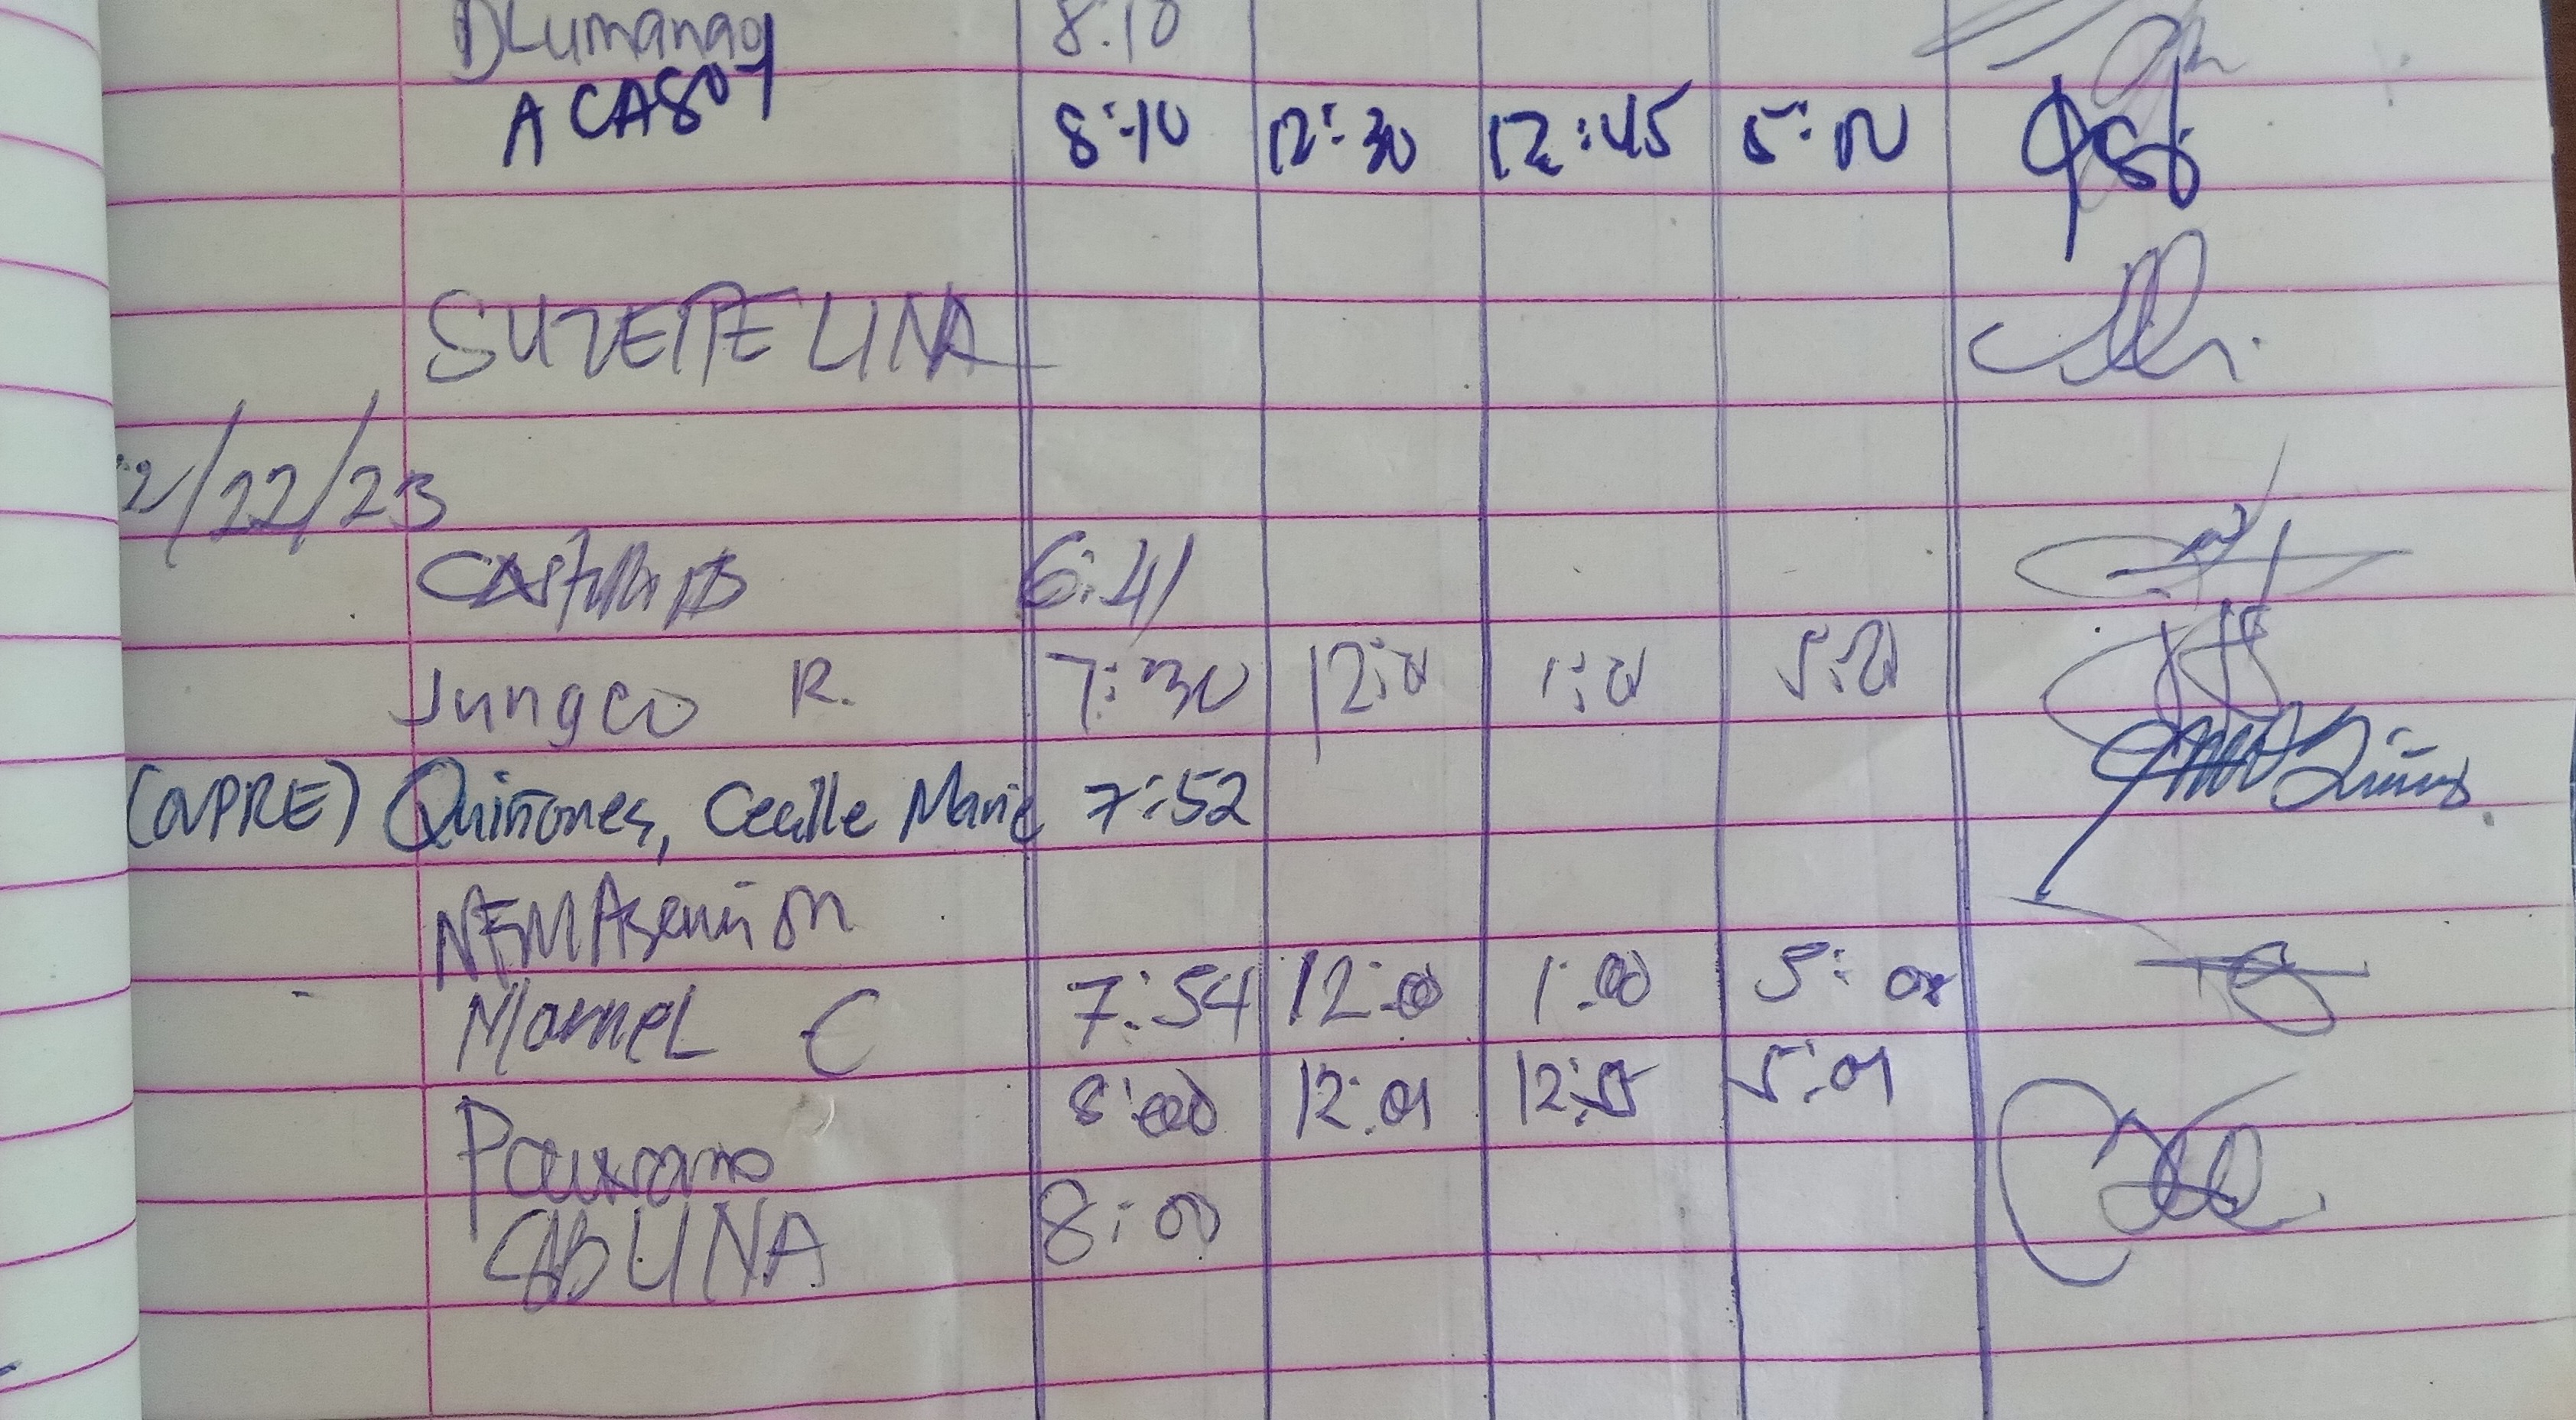 DLumanao 8:10
A CASOY 8:10 12:30 12:45 5:00
SUZETTE LINA
2/22/23
Castillo B 6:41
Jungco R. 7:30 12:01 1:01 5:01
(NPRE) Quiñones, Cecille Marie 7:52
NFM Asencion
Marnel C 7:54 12:00 1:00 5:01
8:00 12:01 12:51 5:01
CABLINA 8:00